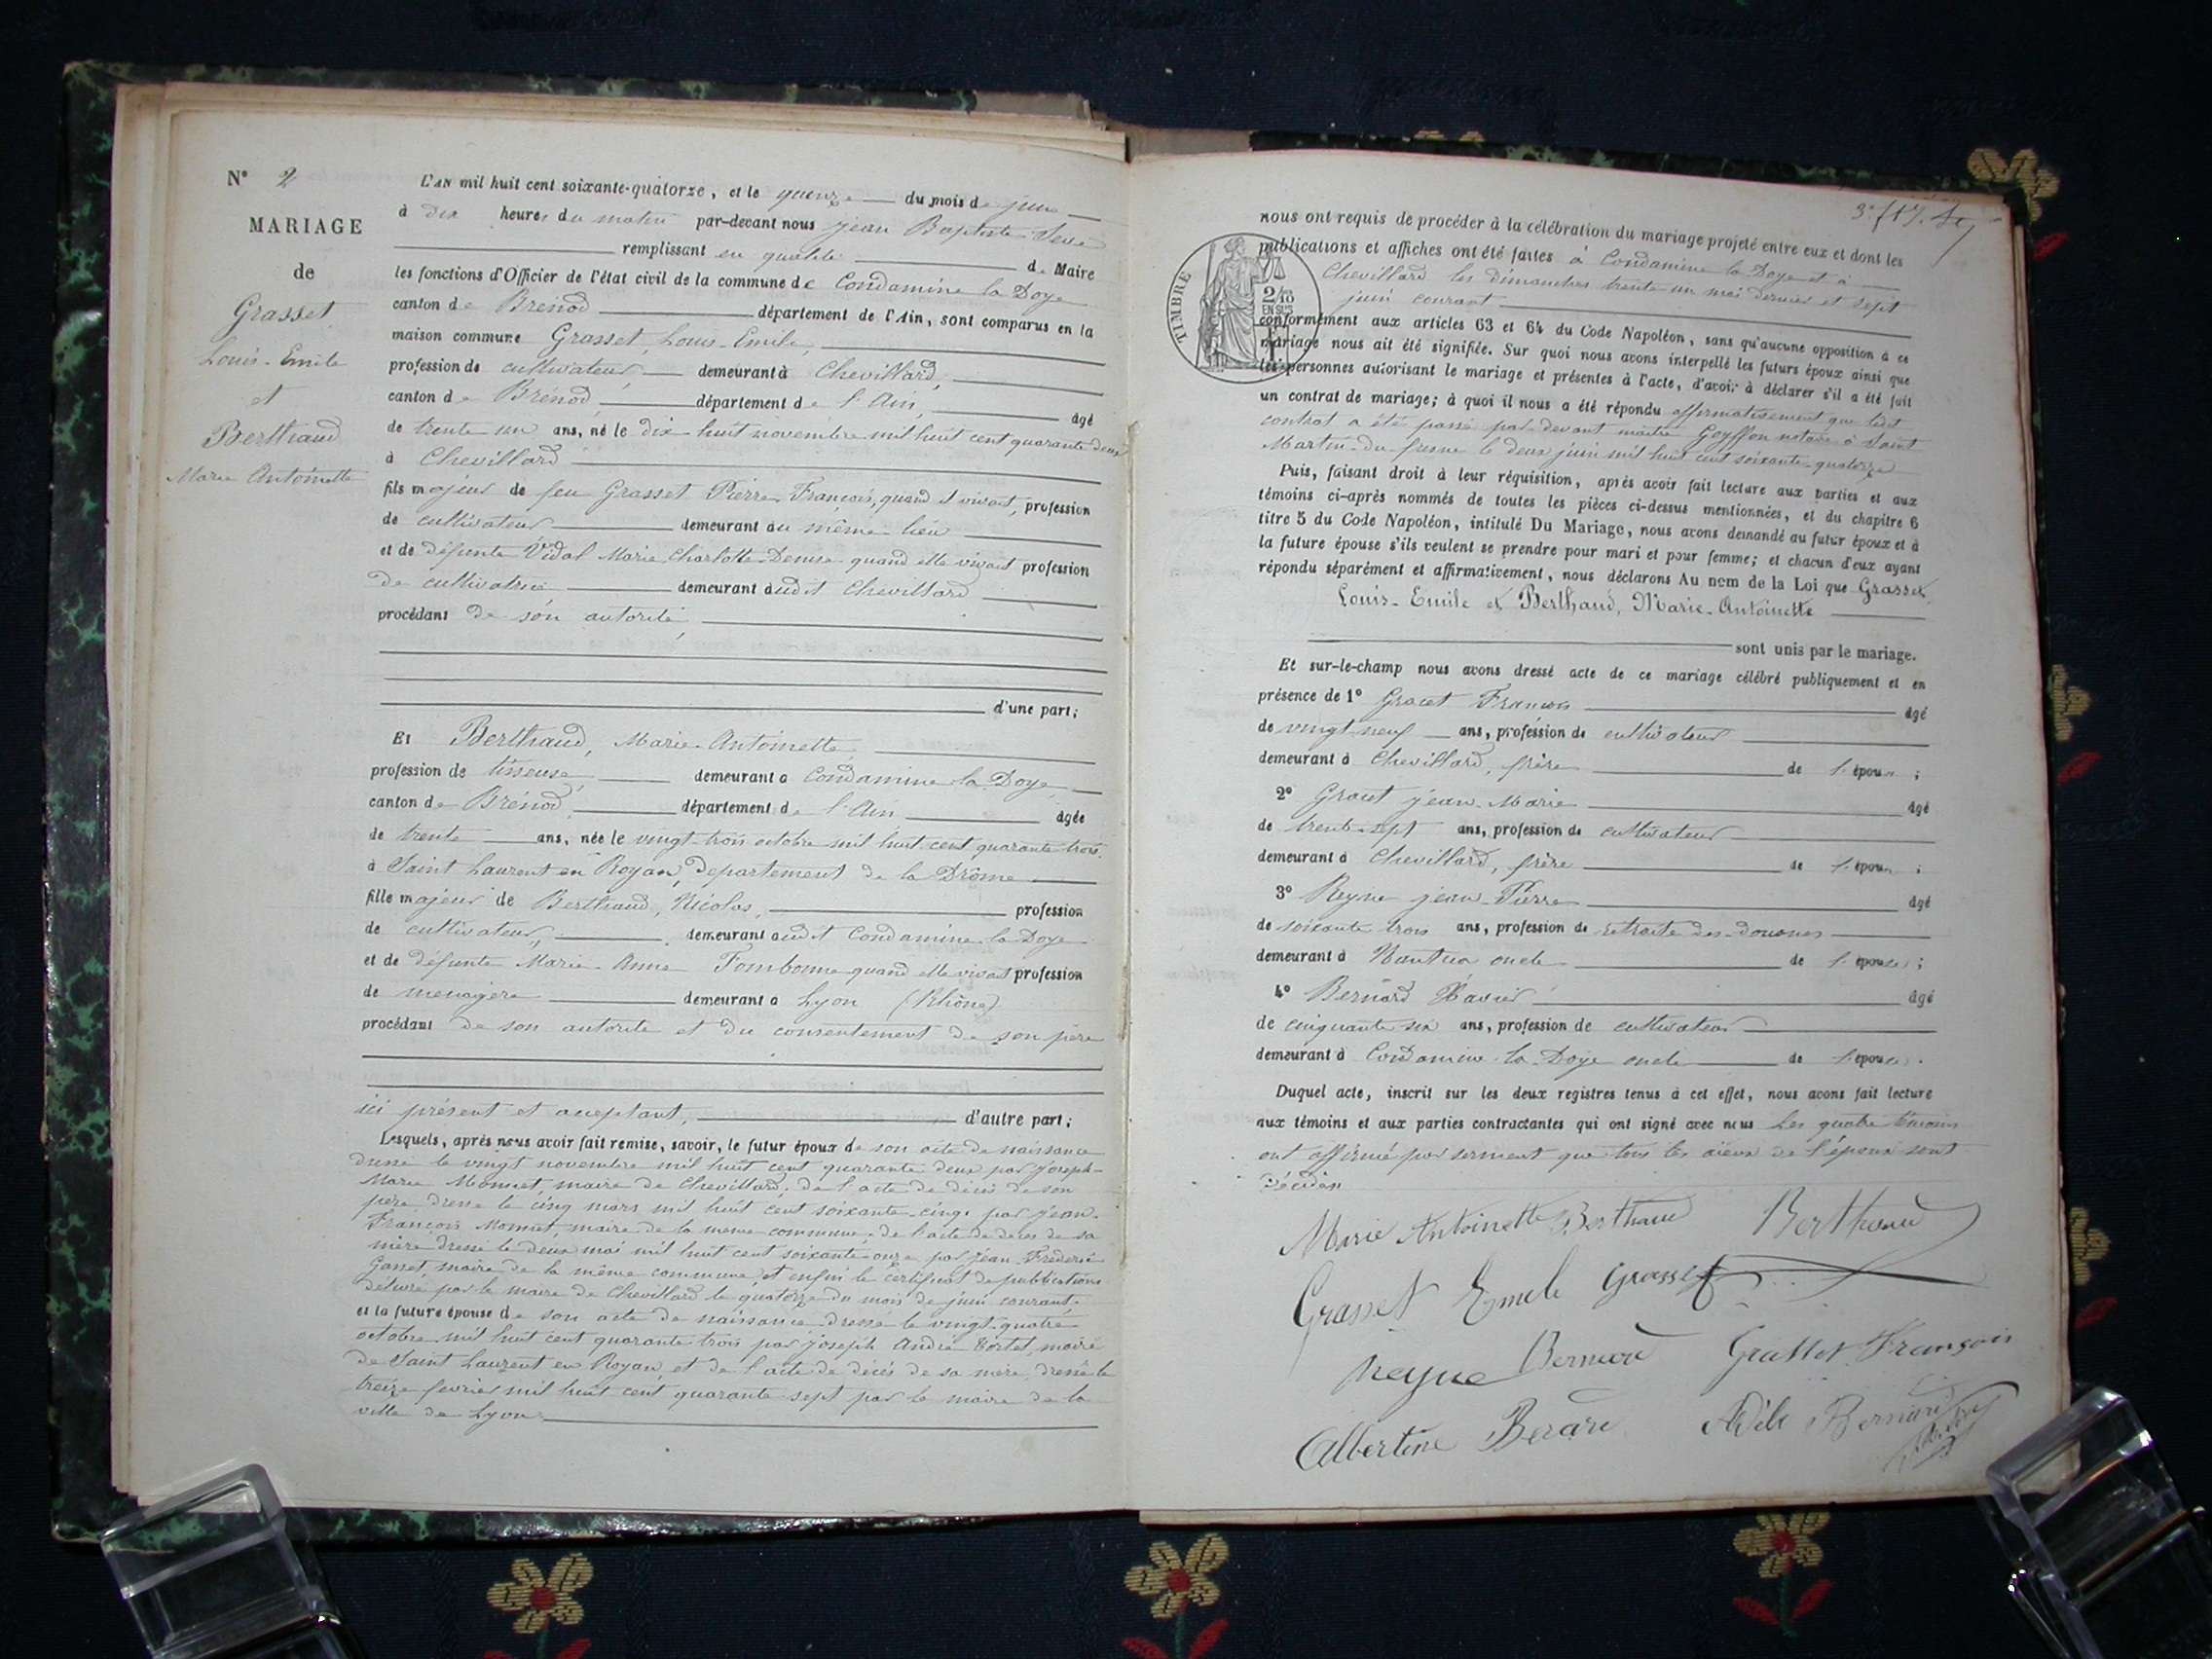 N° 2
MARIAGE
de
Grasset
Louis-Emile
et
Berthaud
Marie Antoinette
L'AN mil huit cent soixante-quatorze, et le quinze du mois de juin
à dix heures du matin par-devant nous jean Baptiste
remplissant en qualité de Maire
les fonctions d'Officier de l'état civil de la commune de Condamine la Doye
canton de Brénod département de l'Ain, sont comparus en la
maison commune Grasset, Louis-Emile,
profession de cultivateur, demeurant à Chevillard,
canton de Brénod, département de l'Ain, âgé
de trente un ans, né le dix-huit novembre mil huit cent quarante deux
à Chevillard
fils majeur de feu Grasset Pierre François, quand il vivait, profession
de cultivateur demeurant au même lieu
et de défunte Vidal Marie Charlotte Denise quand elle vivait profession
de cultivatrice demeurant audit Chevillard
procédant de son autorité,
d'une part;
Et Berthaud, Marie-Antoinette
profession de tisseuse, demeurant à Condamine la Doye
canton de Brénod, département de l'Ain âgée
de trente ans, née le vingt-trois octobre mil huit cent quarante trois
à Saint Laurent en Royan, département de la Drôme
fille majeur de Berthaud, Nicolas, profession
de cultivateur, demeurant audit Condamine la Doye
et de défunte Marie-Anne Fombonne quand elle vivait profession
de menagère demeurant à Lyon (Rhône)
procédant de son autorité et du consentement de son père
ici présent et acceptant, d'autre part;
Lesquels, après nous avoir fait remise, savoir, le futur époux de son acte de naissance
dressé le vingt novembre mil huit cent quarante deux par Joseph-
Marie Monnet, maire de Chevillard; de l'acte de décès de son
père dressé le cinq mars mil huit cent soixante-cinq, par jean-
François Monnet, maire de la même commune, de l'acte de décès de sa
mère dressé le deux mai mil huit cent soixante onze par jean Frédéric
Gasset, maire de la même commune, et enfin le certificat de publications
délivré par le maire de Chevillard le quatorze du mois de juin courant.
et la future épouse de son acte de naissance dressé le vingt-quatre
octobre mil huit cent quarante trois par joseph André Tortet, maire
de Saint Laurent en Royan et de l'acte de décès de sa mère, dressé le
treize fevrier mil huit cent quarante sept par le maire de la
ville de Lyon
TIMBRE
2/10
EN SUS
nous ont requis de procéder à la célébration du mariage projeté entre eux et dont les
publications et affiches ont été faites à Condamine la Doye et à
Chevillard les dimanches trente un mai dernier et sept
juin courant
conformément aux articles 63 et 64 du Code Napoléon, sans qu'aucune opposition à ce
mariage nous ait été signifiée. Sur quoi nous avons interpellé les futurs époux ainsi que
les personnes autorisant le mariage et présentes à l'acte, d'avoir à déclarer s'il a été fait
un contrat de mariage; à quoi il nous a été répondu affirmativement que ledit
contrat a été passé par-devant maître Goyffon notaire à Saint
Martin-du-fresne le deux juin mil huit cent soixante-quatorze
Puis, faisant droit à leur réquisition, après avoir fait lecture aux parties et aux
témoins ci-après nommés de toutes les pièces ci-dessus mentionnées, et du chapitre 6
titre 5 du Code Napoléon, intitulé Du Mariage, nous avons demandé au futur époux et à
la future épouse s'ils veulent se prendre pour mari et pour femme; et chacun d'eux ayant
répondu séparément et affirmativement, nous déclarons Au nom de la Loi que Grasset
Louis-Emile et Berthaud, Marie-Antoinette
sont unis par le mariage.
Et sur-le-champ nous avons dressé acte de ce mariage célébré publiquement et en
présence de 1° Gracet François âgé
de vingt-neuf ans, profession de cultivateur
demeurant à Chevillard, frère de l'époux;
2° Gracet jean-Marie âgé
de trente-sept ans, profession de cultivateur
demeurant à Chevillard, frère de l'époux;
3° Reyne jean-Pierre âgé
de soixante trois ans, profession de retraité des-douanes
demeurant à Nantua oncle de l'épouse;
4° Bernard Xavier âgé
de cinquante six ans, profession de cultivateur
demeurant à Condamine-la-Doye oncle de l'épouse.
Duquel acte, inscrit sur les deux registres tenus à cet effet, nous avons fait lecture
aux témoins et aux parties contractantes qui ont signé avec nous Les quatre témoins
ont affirmé par serment que tous les aïeux de l'époux sont
décédés
Marie Antoinette Berthaud Berthaud
Grasset Emile Grasset
Reyne Bernard Grasset François
Albertine Berard Adèle Bernard